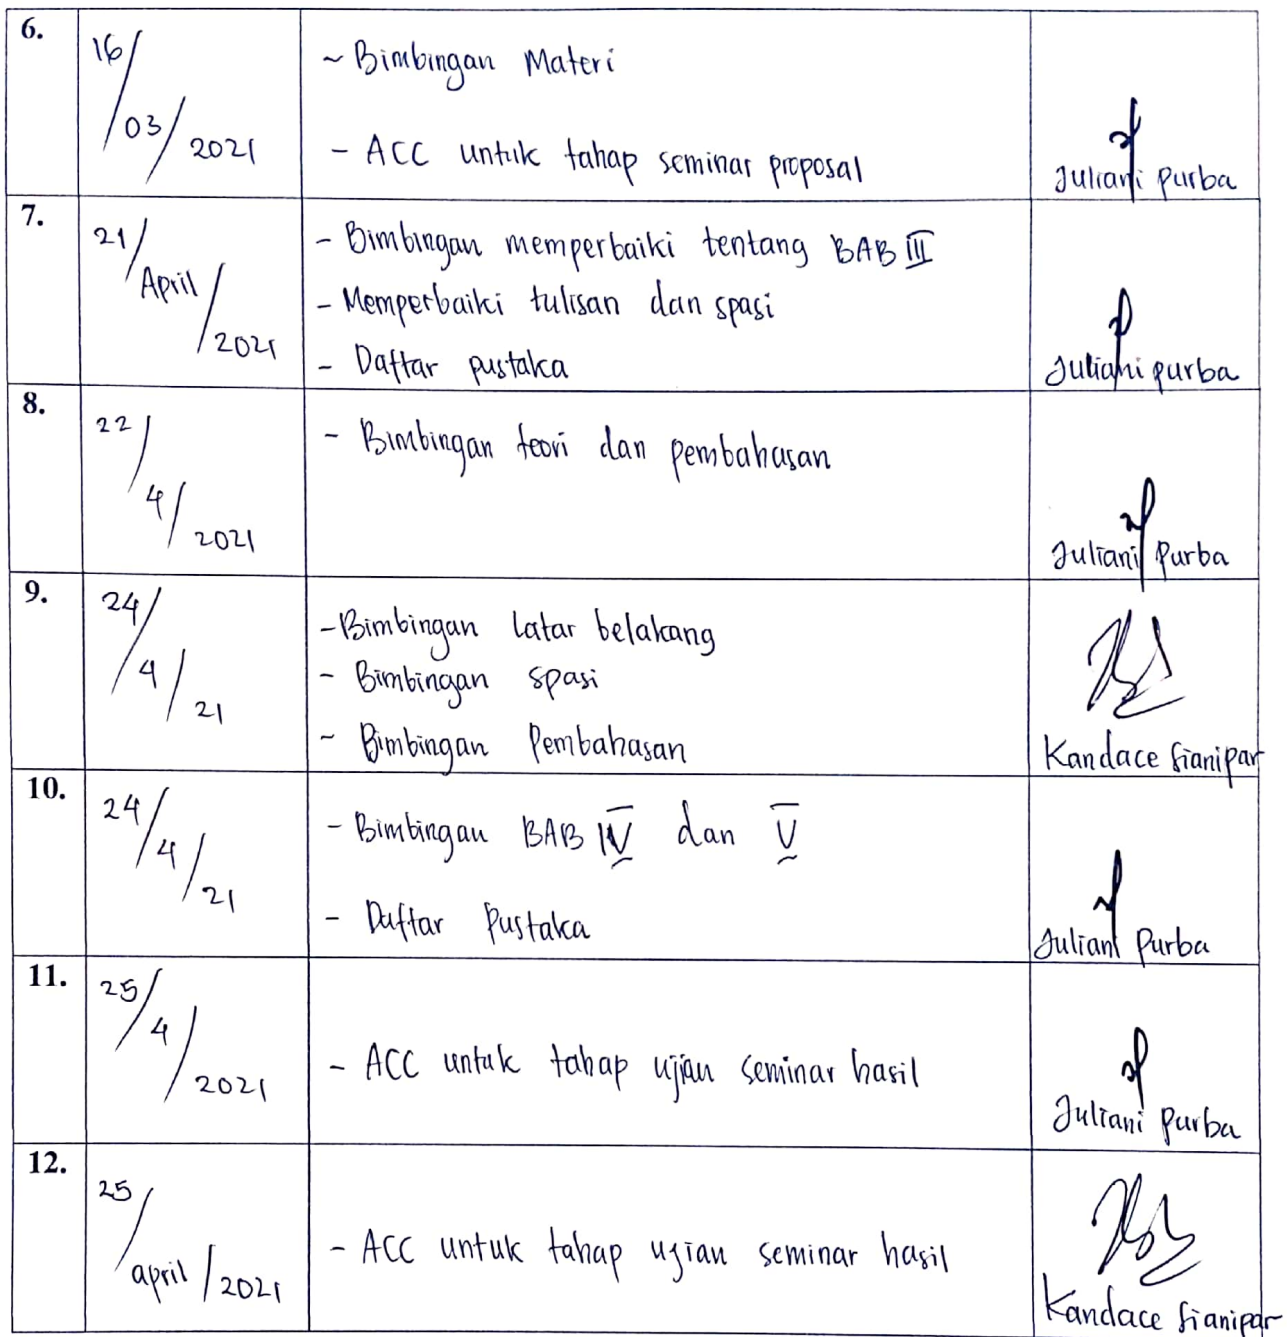 6.
16/03/2021
~ Bimbingan Materi
- ACC untuk tahap seminar proposal
Juliani Purba
7.
21/April/2021
- Bimbingan memperbaiki tentang BAB III
- Memperbaiki tulisan dan spasi
- Daftar pustaka
Juliani purba
8.
22/4/2021
- Bimbingan teori dan pembahasan
Juliani Purba
9.
24/4/21
- Bimbingan latar belakang
- Bimbingan spasi
- Bimbingan Pembahasan
Kandace Sianipar
10.
24/4/21
- Bimbingan BAB IV dan V
- Daftar Pustaka
Juliani Purba
11.
25/4/2021
- ACC untuk tahap ujian seminar hasil
Juliani Purba
12.
25/april/2021
- ACC untuk tahap ujian seminar hasil
Kandace Sianipar